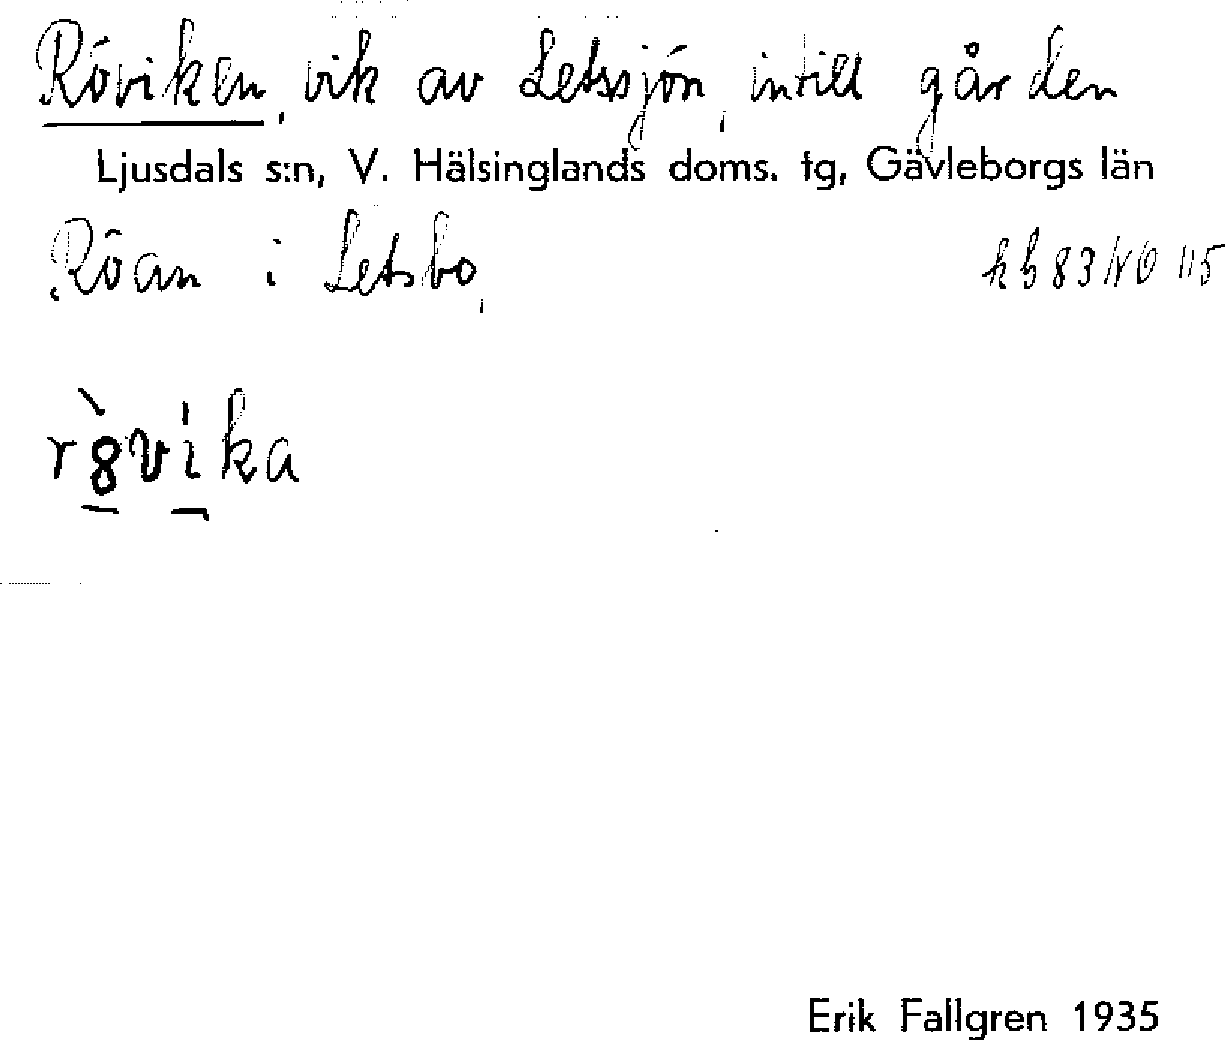 Röviken, vik av Letssjön, intill gården
Ljusdals s:n, V. Hälsinglands doms. tg, Gävleborgs län
Röan i Letsbo,
hb 83 NO 115
r8̀vika
Erik Fallgren 1935